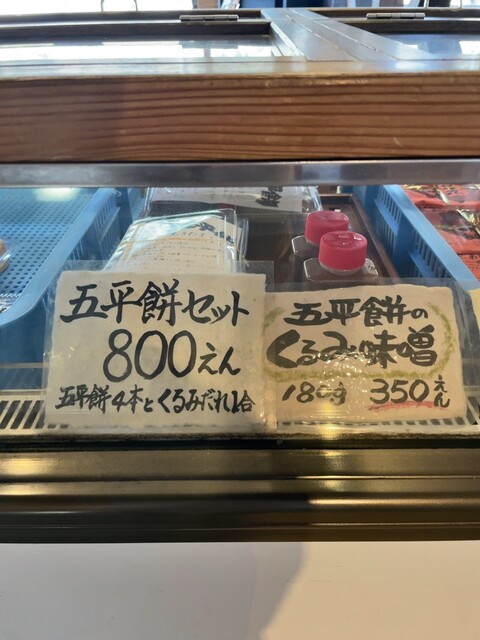 五平餅セット
800えん
五平餅4本とくるみだれ1合
五平餅の
くるみ味噌
180g 350えん